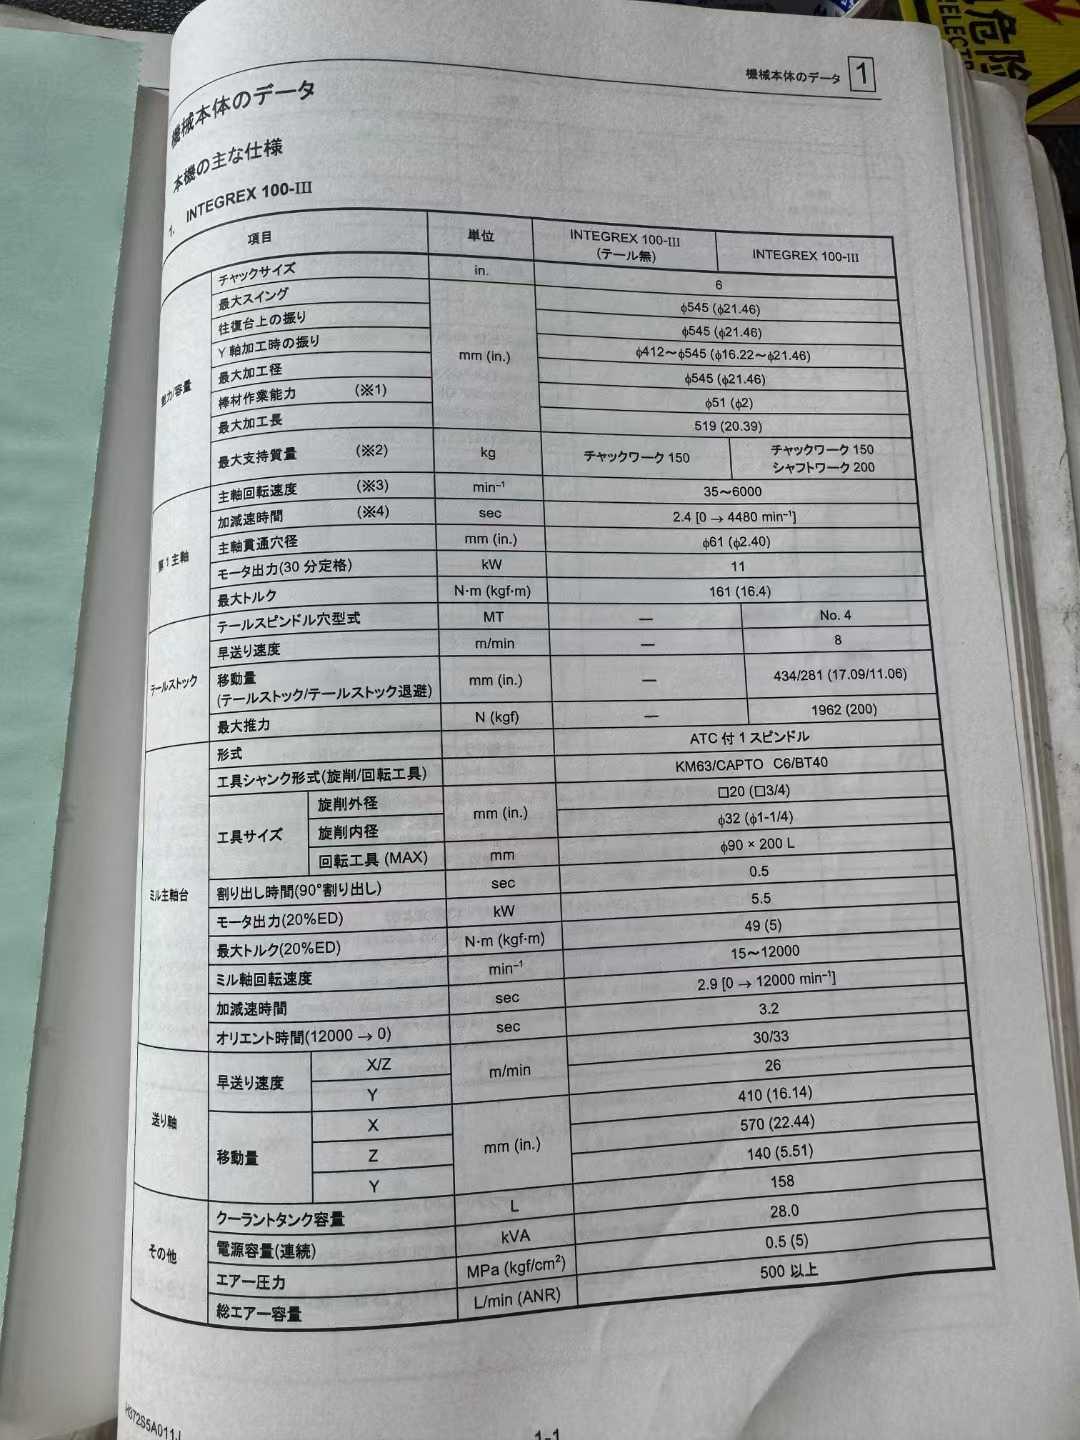 危険
ELECTR
機械本体のデータ 1
機械本体のデータ
本機の主な仕様
1. INTEGREX 100-III
項目 単位 INTEGREX 100-III (テール無) INTEGREX 100-III
能力/容量
チャックサイズ in. 6
最大スイング mm (in.) φ545 (φ21.46)
往復台上の振り φ545 (φ21.46)
Y 軸加工時の振り φ412～φ545 (φ16.22～φ21.46)
最大加工径 φ545 (φ21.46)
棒材作業能力 (※1) φ51 (φ2)
最大加工長 519 (20.39)
最大支持質量 (※2) kg チャックワーク 150 チャックワーク 150
シャフトワーク 200
第 1 主軸
主軸回転速度 (※3) min⁻¹ 35～6000
加減速時間 (※4) sec 2.4 [0 → 4480 min⁻¹]
主軸貫通穴径 mm (in.) φ61 (φ2.40)
モータ出力(30 分定格) kW 11
最大トルク N·m (kgf·m) 161 (16.4)
テールストック
テールスピンドル穴型式 MT — No. 4
早送り速度 m/min — 8
移動量
(テールストック/テールストック退避) mm (in.) — 434/281 (17.09/11.06)
最大推力 N (kgf) — 1962 (200)
ミル主軸台
形式 ATC 付 1 スピンドル
工具シャンク形式(旋削/回転工具) KM63/CAPTO C6/BT40
工具サイズ 旋削外径 mm (in.) □20 (□3/4)
旋削内径 φ32 (φ1-1/4)
回転工具 (MAX) mm φ90 × 200 L
割り出し時間(90°割り出し) sec 0.5
モータ出力(20%ED) kW 5.5
最大トルク(20%ED) N·m (kgf·m) 49 (5)
ミル軸回転速度 min⁻¹ 15～12000
加減速時間 sec 2.9 [0 → 12000 min⁻¹]
オリエント時間(12000 → 0) sec 3.2
送り軸
早送り速度 X/Z m/min 30/33
Y 26
移動量 X mm (in.) 410 (16.14)
Z 570 (22.44)
Y 140 (5.51)
その他
クーラントタンク容量 L 158
電源容量(連続) kVA 28.0
エアー圧力 MPa (kgf/cm²) 0.5 (5)
総エアー容量 L/min (ANR) 500 以上
H372S5A011J
1-1